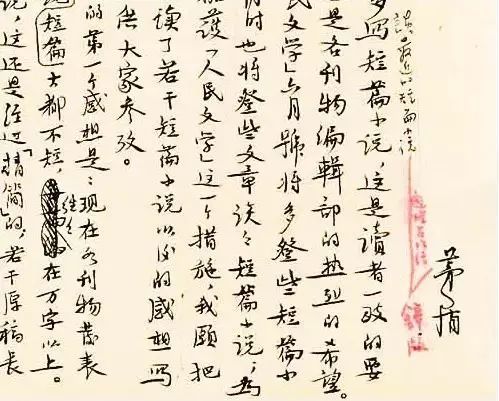 茅盾
談最近的短篇小说
多寫短篇小说，这是讀者一致的要
是各刊物编輯部的热烈的希望。
民文学」六月號将多登些短篇小
时也将登些文章谈々短篇小说，为
護「人民文学」这一个措施，我願把
讀了若干短篇小说以后的感想写
供大家参攷。
的第一个感想是：现在各刊物发表
短篇大都不短，往々在万字以上。
说，这还是经过「精简」的，若干原稿長